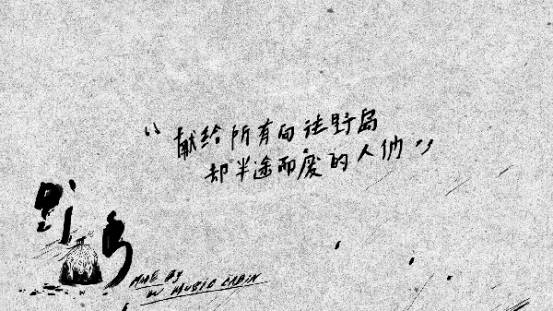 “献给所有向往野岛
却半途而废的人们”
野岛
MADE BY
MUSIC CABIN